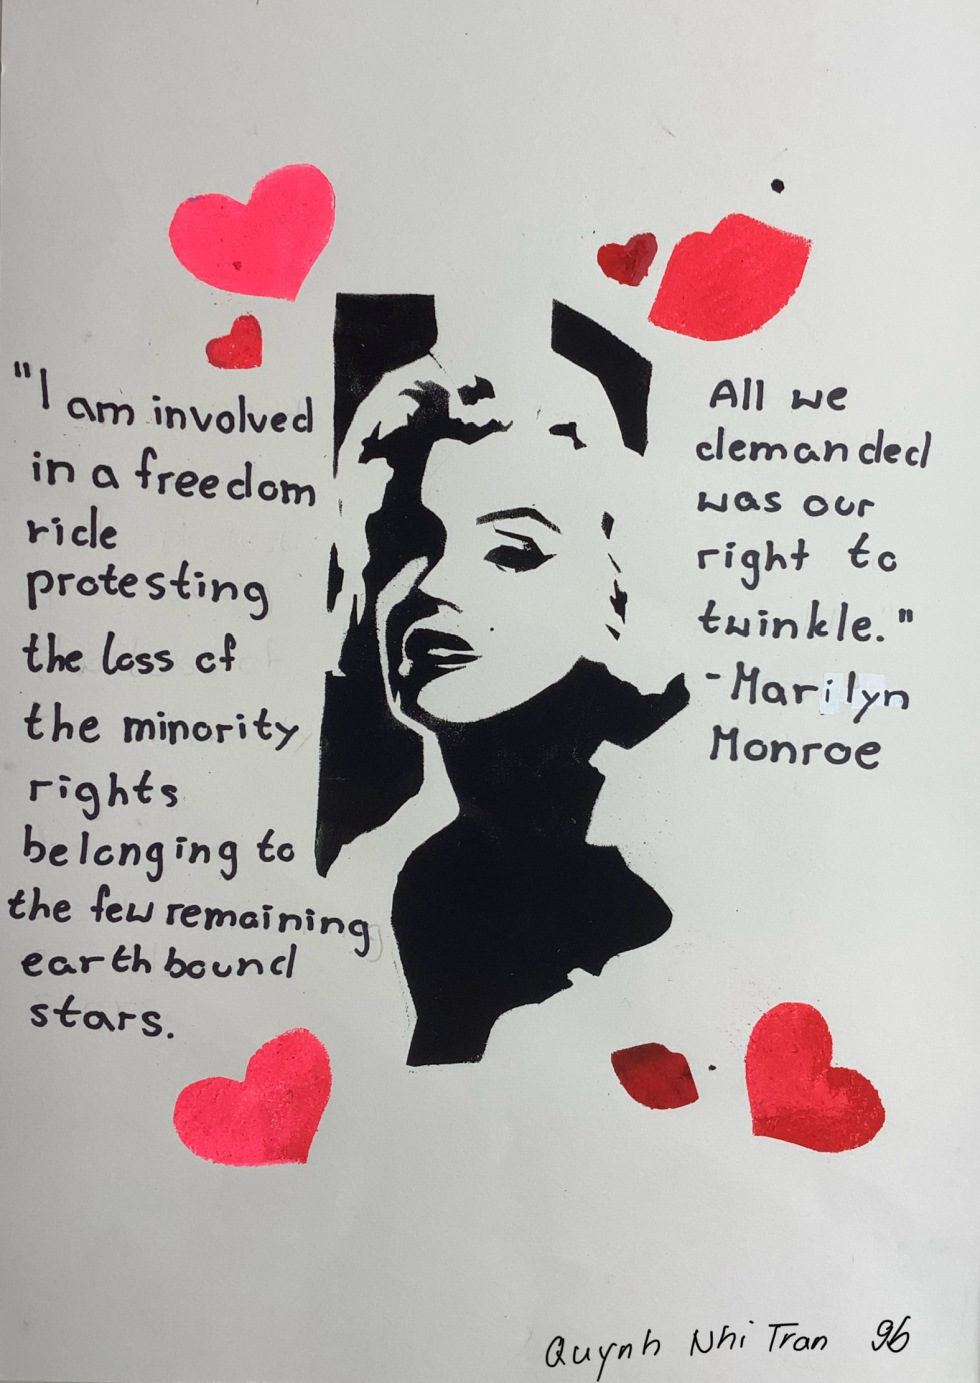 "I am involved
in a freedom
ride
protesting
the loss of
the minority
rights
belonging to
the few remaining
earthbound
stars.
All we
demanded
was our
right to
twinkle."
-Marilyn
Monroe
Quynh Nhi Tran 9b